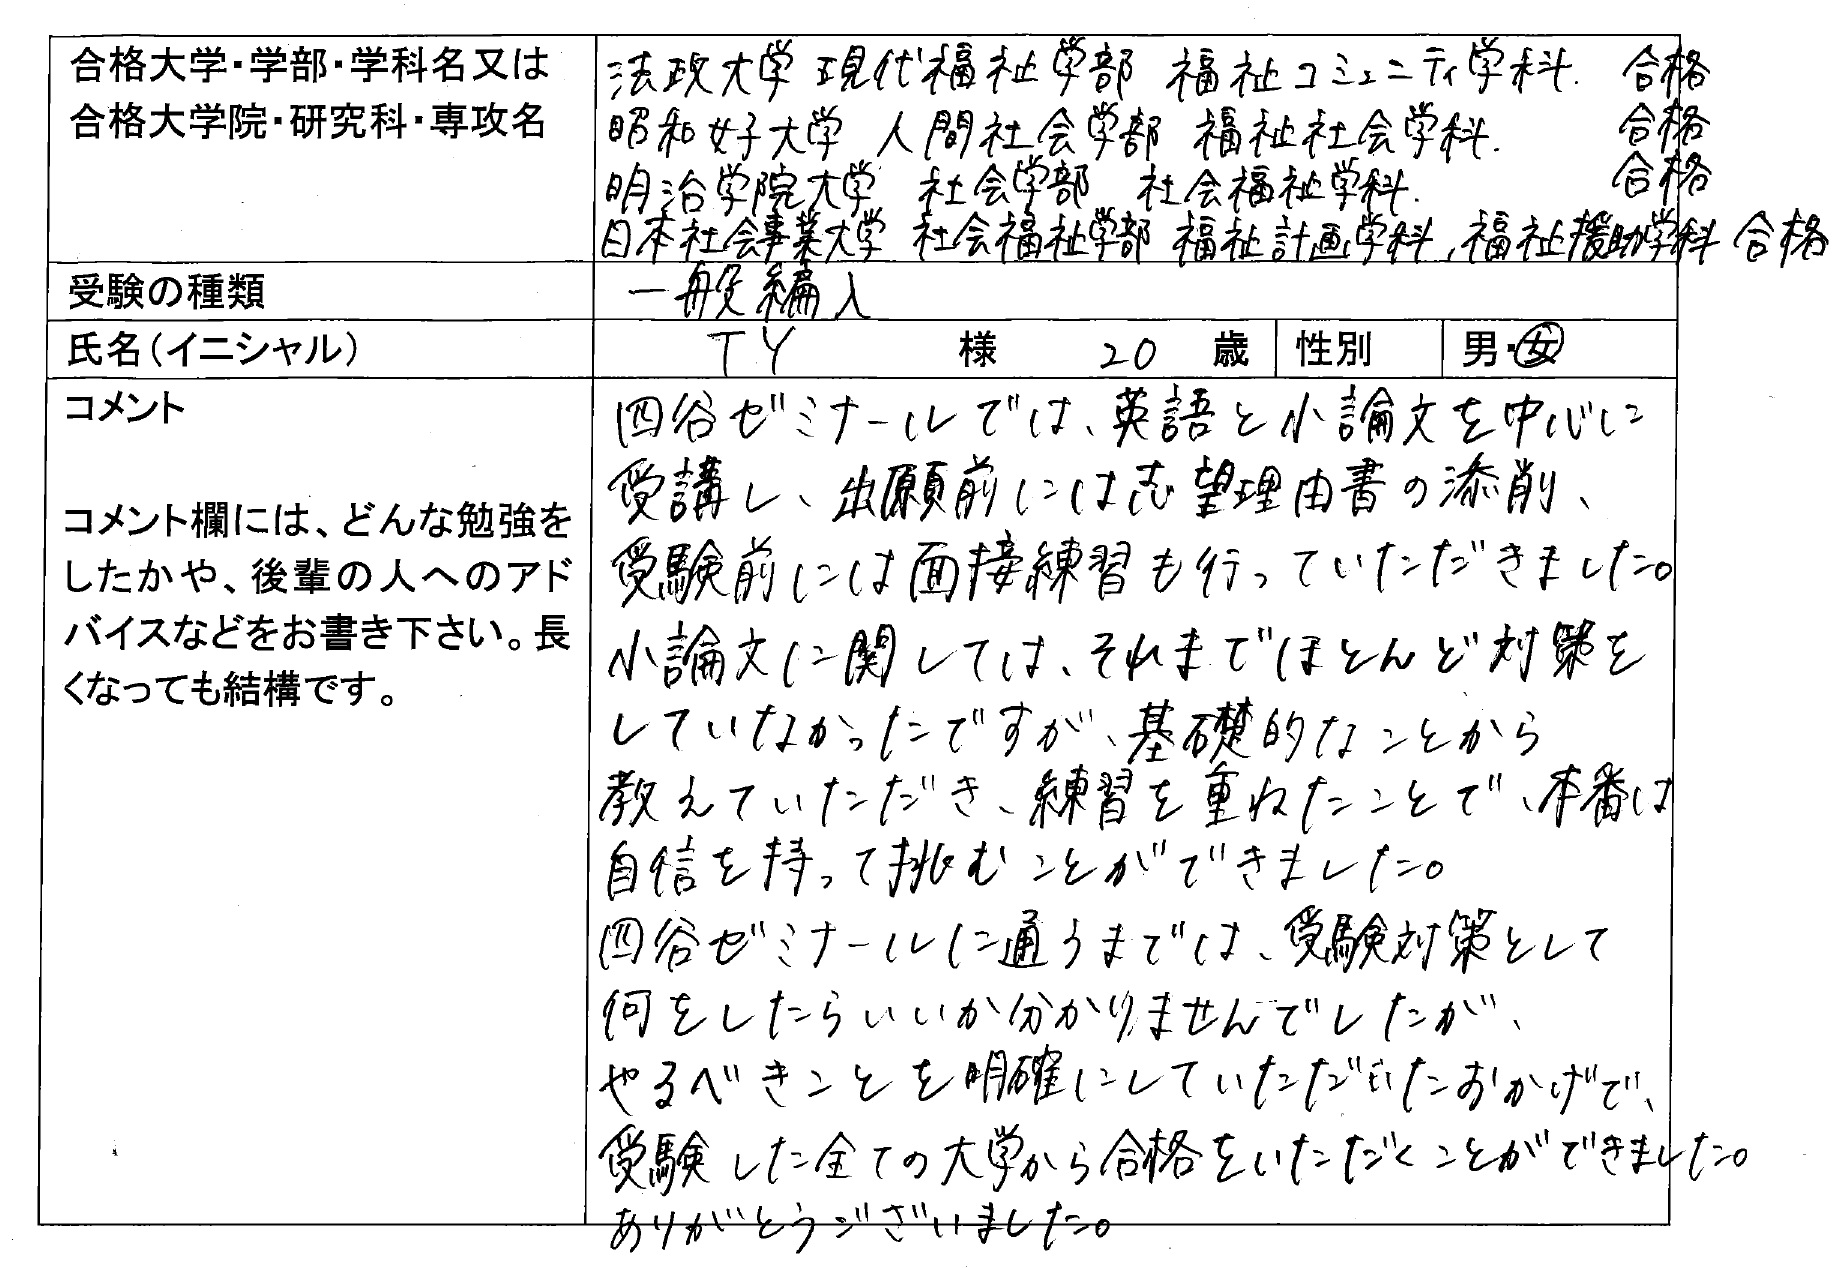 合格大学・学部・学科名又は
合格大学院・研究科・専攻名
法政大学 現代福祉学部 福祉コミュニティ学科. 合格
昭和女子大学 人間社会学部 福祉社会学科. 合格
明治学院大学 社会学部 社会福祉学科. 合格
日本社会事業大学 社会福祉学部 福祉計画学科、福祉援助学科 合格
受験の種類 一般編入
氏名(イニシャル) TY 様 20 歳 性別 男・女
コメント
コメント欄には、どんな勉強を
したかや、後輩の人へのアド
バイスなどをお書き下さい。長
くなっても結構です。
四谷ゼミナールでは、英語と小論文を中心に
受講し、出願前には志望理由書の添削、
受験前には面接練習も行っていただきました。
小論文に関しては、それまでほとんど対策を
していなかったですが、基礎的なことから
教えていただき、練習を重ねたことで、本番は
自信を持って挑むことができました。
四谷ゼミナールに通うまでは、受験対策として
何をしたらいいか分かりませんでしたが、
やるべきことを明確にしていただいたおかげで、
受験した全ての大学から合格をいただくことができました。
ありがとうございました。